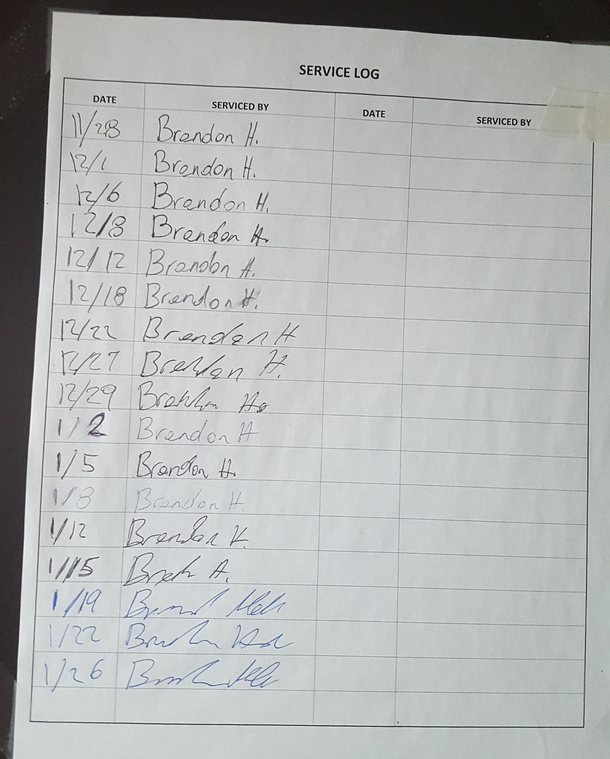 SERVICE LOG
DATE SERVICED BY DATE SERVICED BY
11/28 Brandon H.
12/1 Brandon H.
12/6 Brandon H.
12/8 Brandon H.
12/12 Brandon H.
12/18 Brandon H.
12/22 Brandon H
12/27 Brandon H.
12/29
1/2 Brandon H
1/5 Brandon H.
1/8 Brandon H.
1/12 Brandon H.
1/15
1/19
1/22
1/26